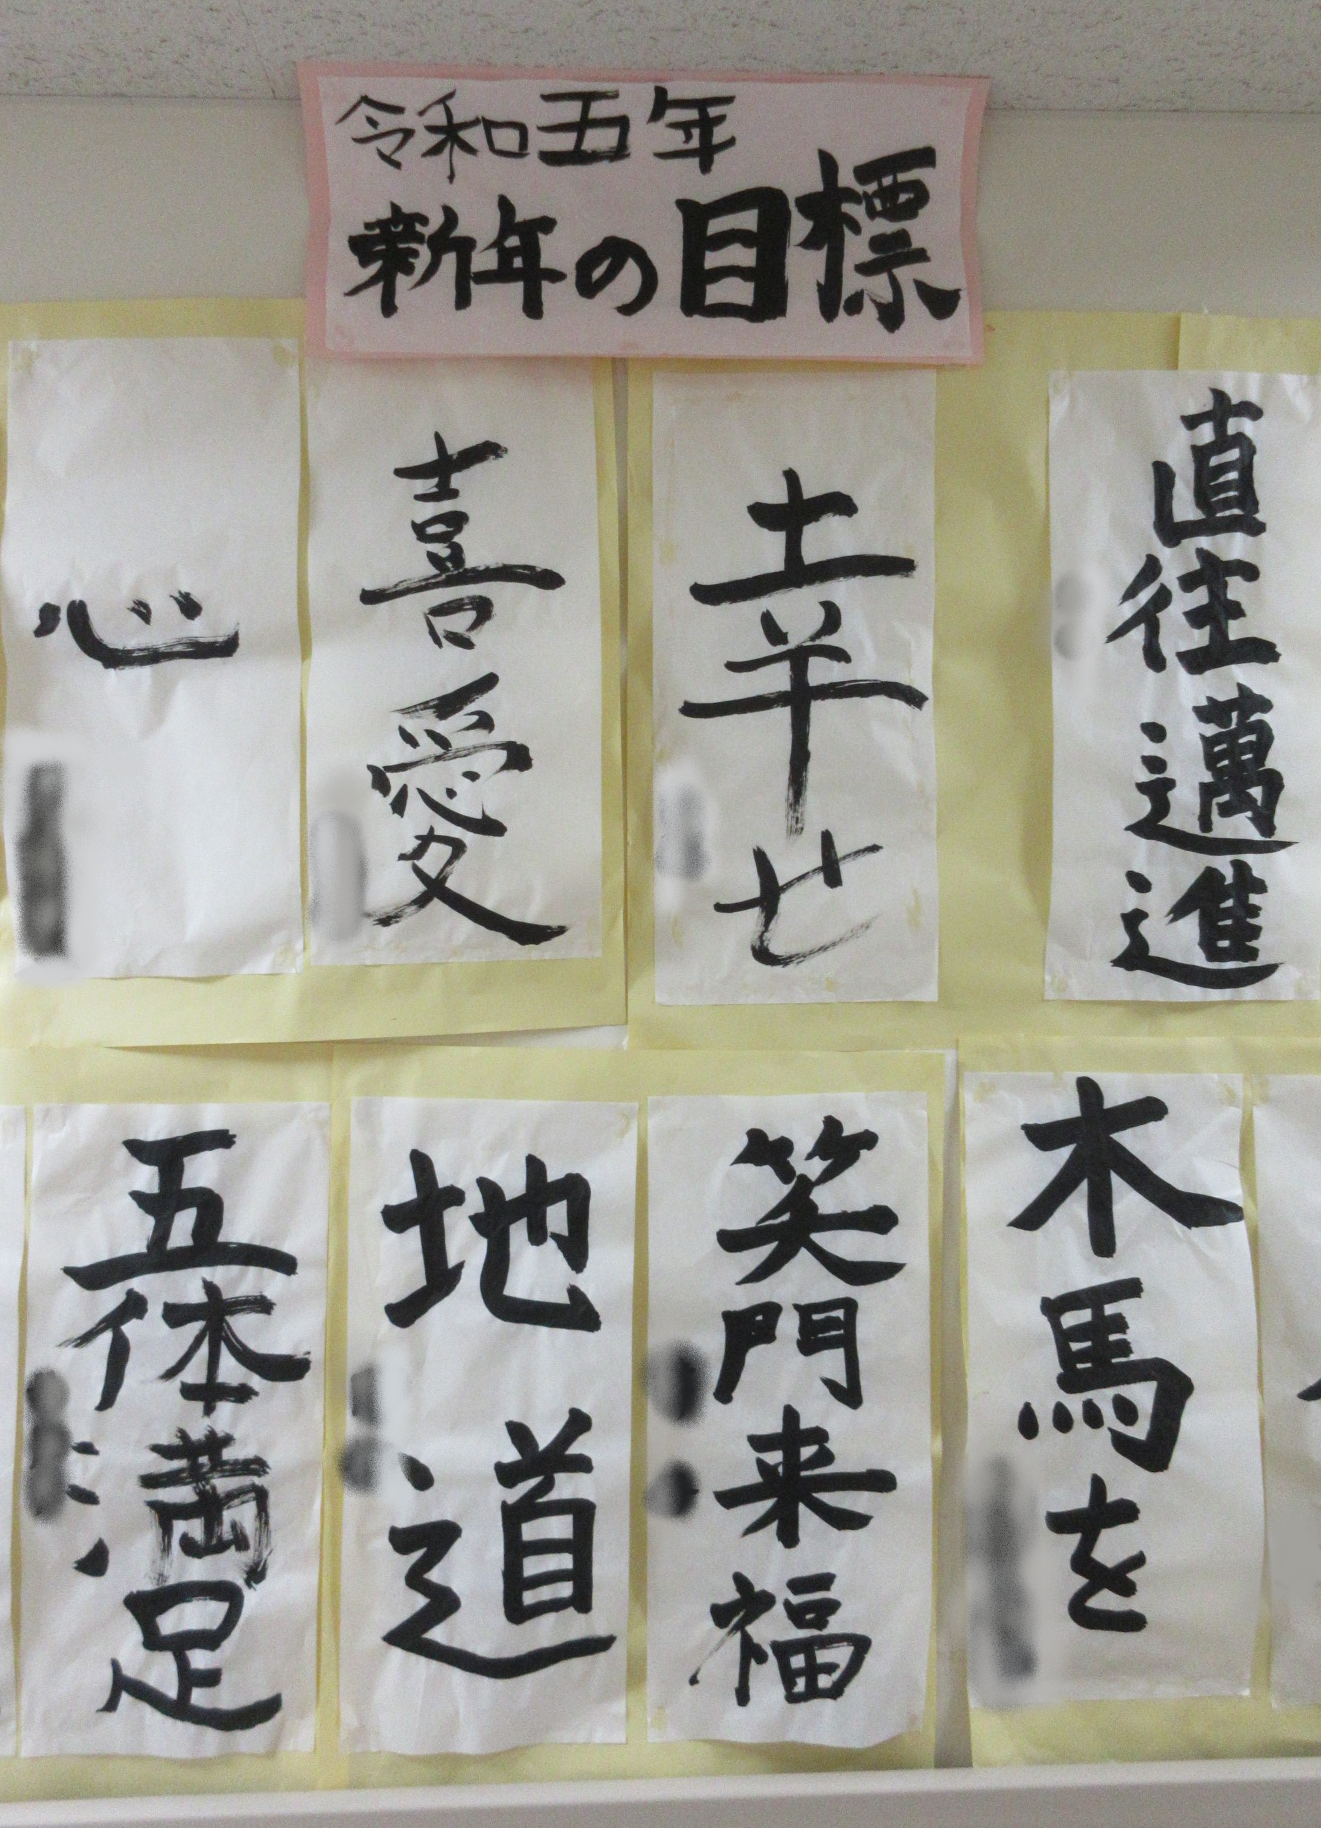 令和五年
新年の目標
直往邁進
幸せ
喜愛
心
木馬を
笑門来福
地道
五体満足